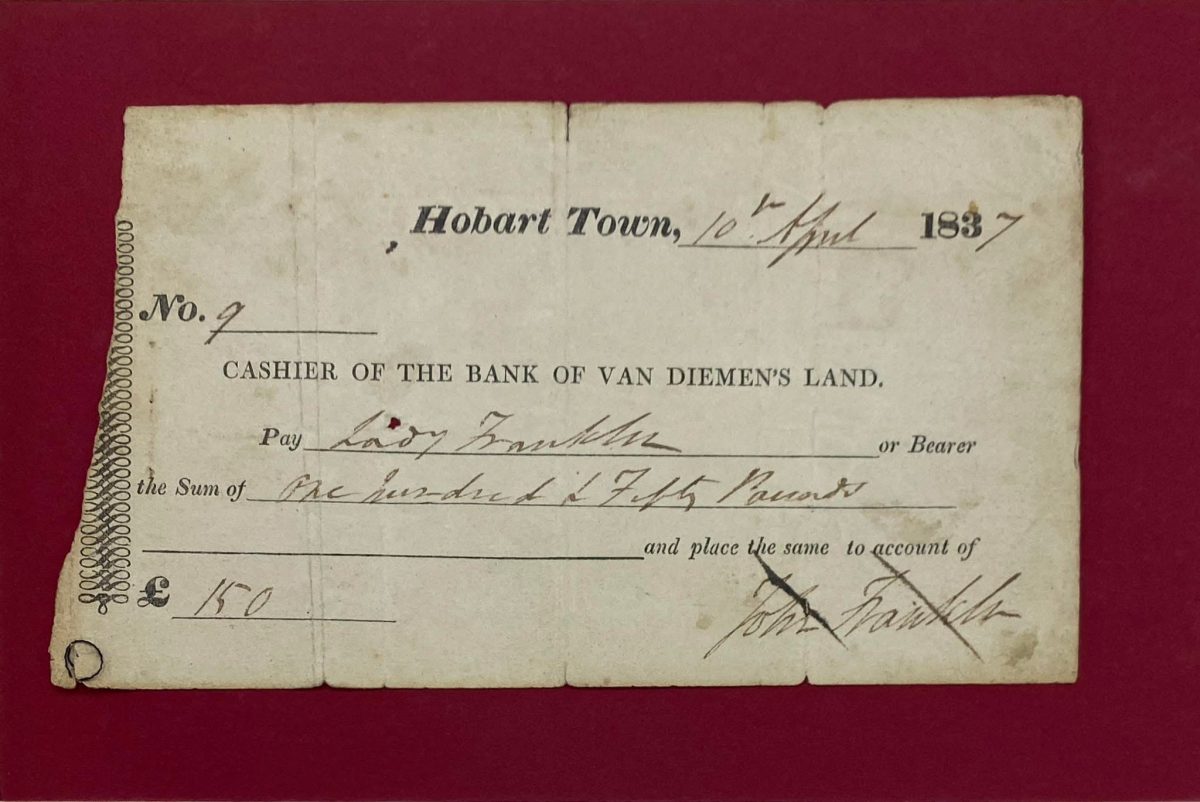 Hobart Town, 10th April 1837
No. 9
CASHIER OF THE BANK OF VAN DIEMEN'S LAND.
Pay Lady Franklin or Bearer
the Sum of One hundred & Fifty Pounds
and place the same to account of
£ 150 John Franklin